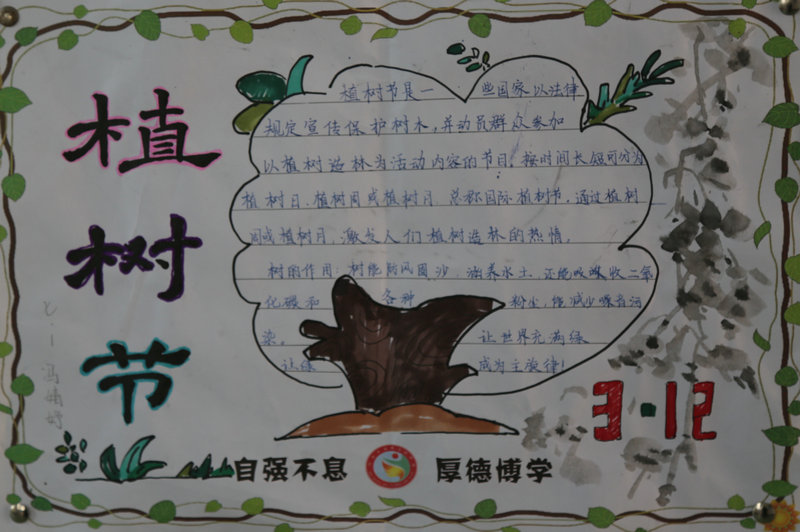 植树节
植树节是一些国家以法律
规定宣传保护树木，并动员群众参加
以植树造林为活动内容的节日。按时间长短可分为
植树日、植树周或植树月，总称国际植树节。通过植树
周或植树月，激发人们植树造林的热情。
树的作用：树能防风固沙，涵养水土，还能吸收二氧
化碳和各种粉尘，能减少噪音污
染。让世界充满绿
让绿成为主旋律！
3·12
自强不息 厚德博学